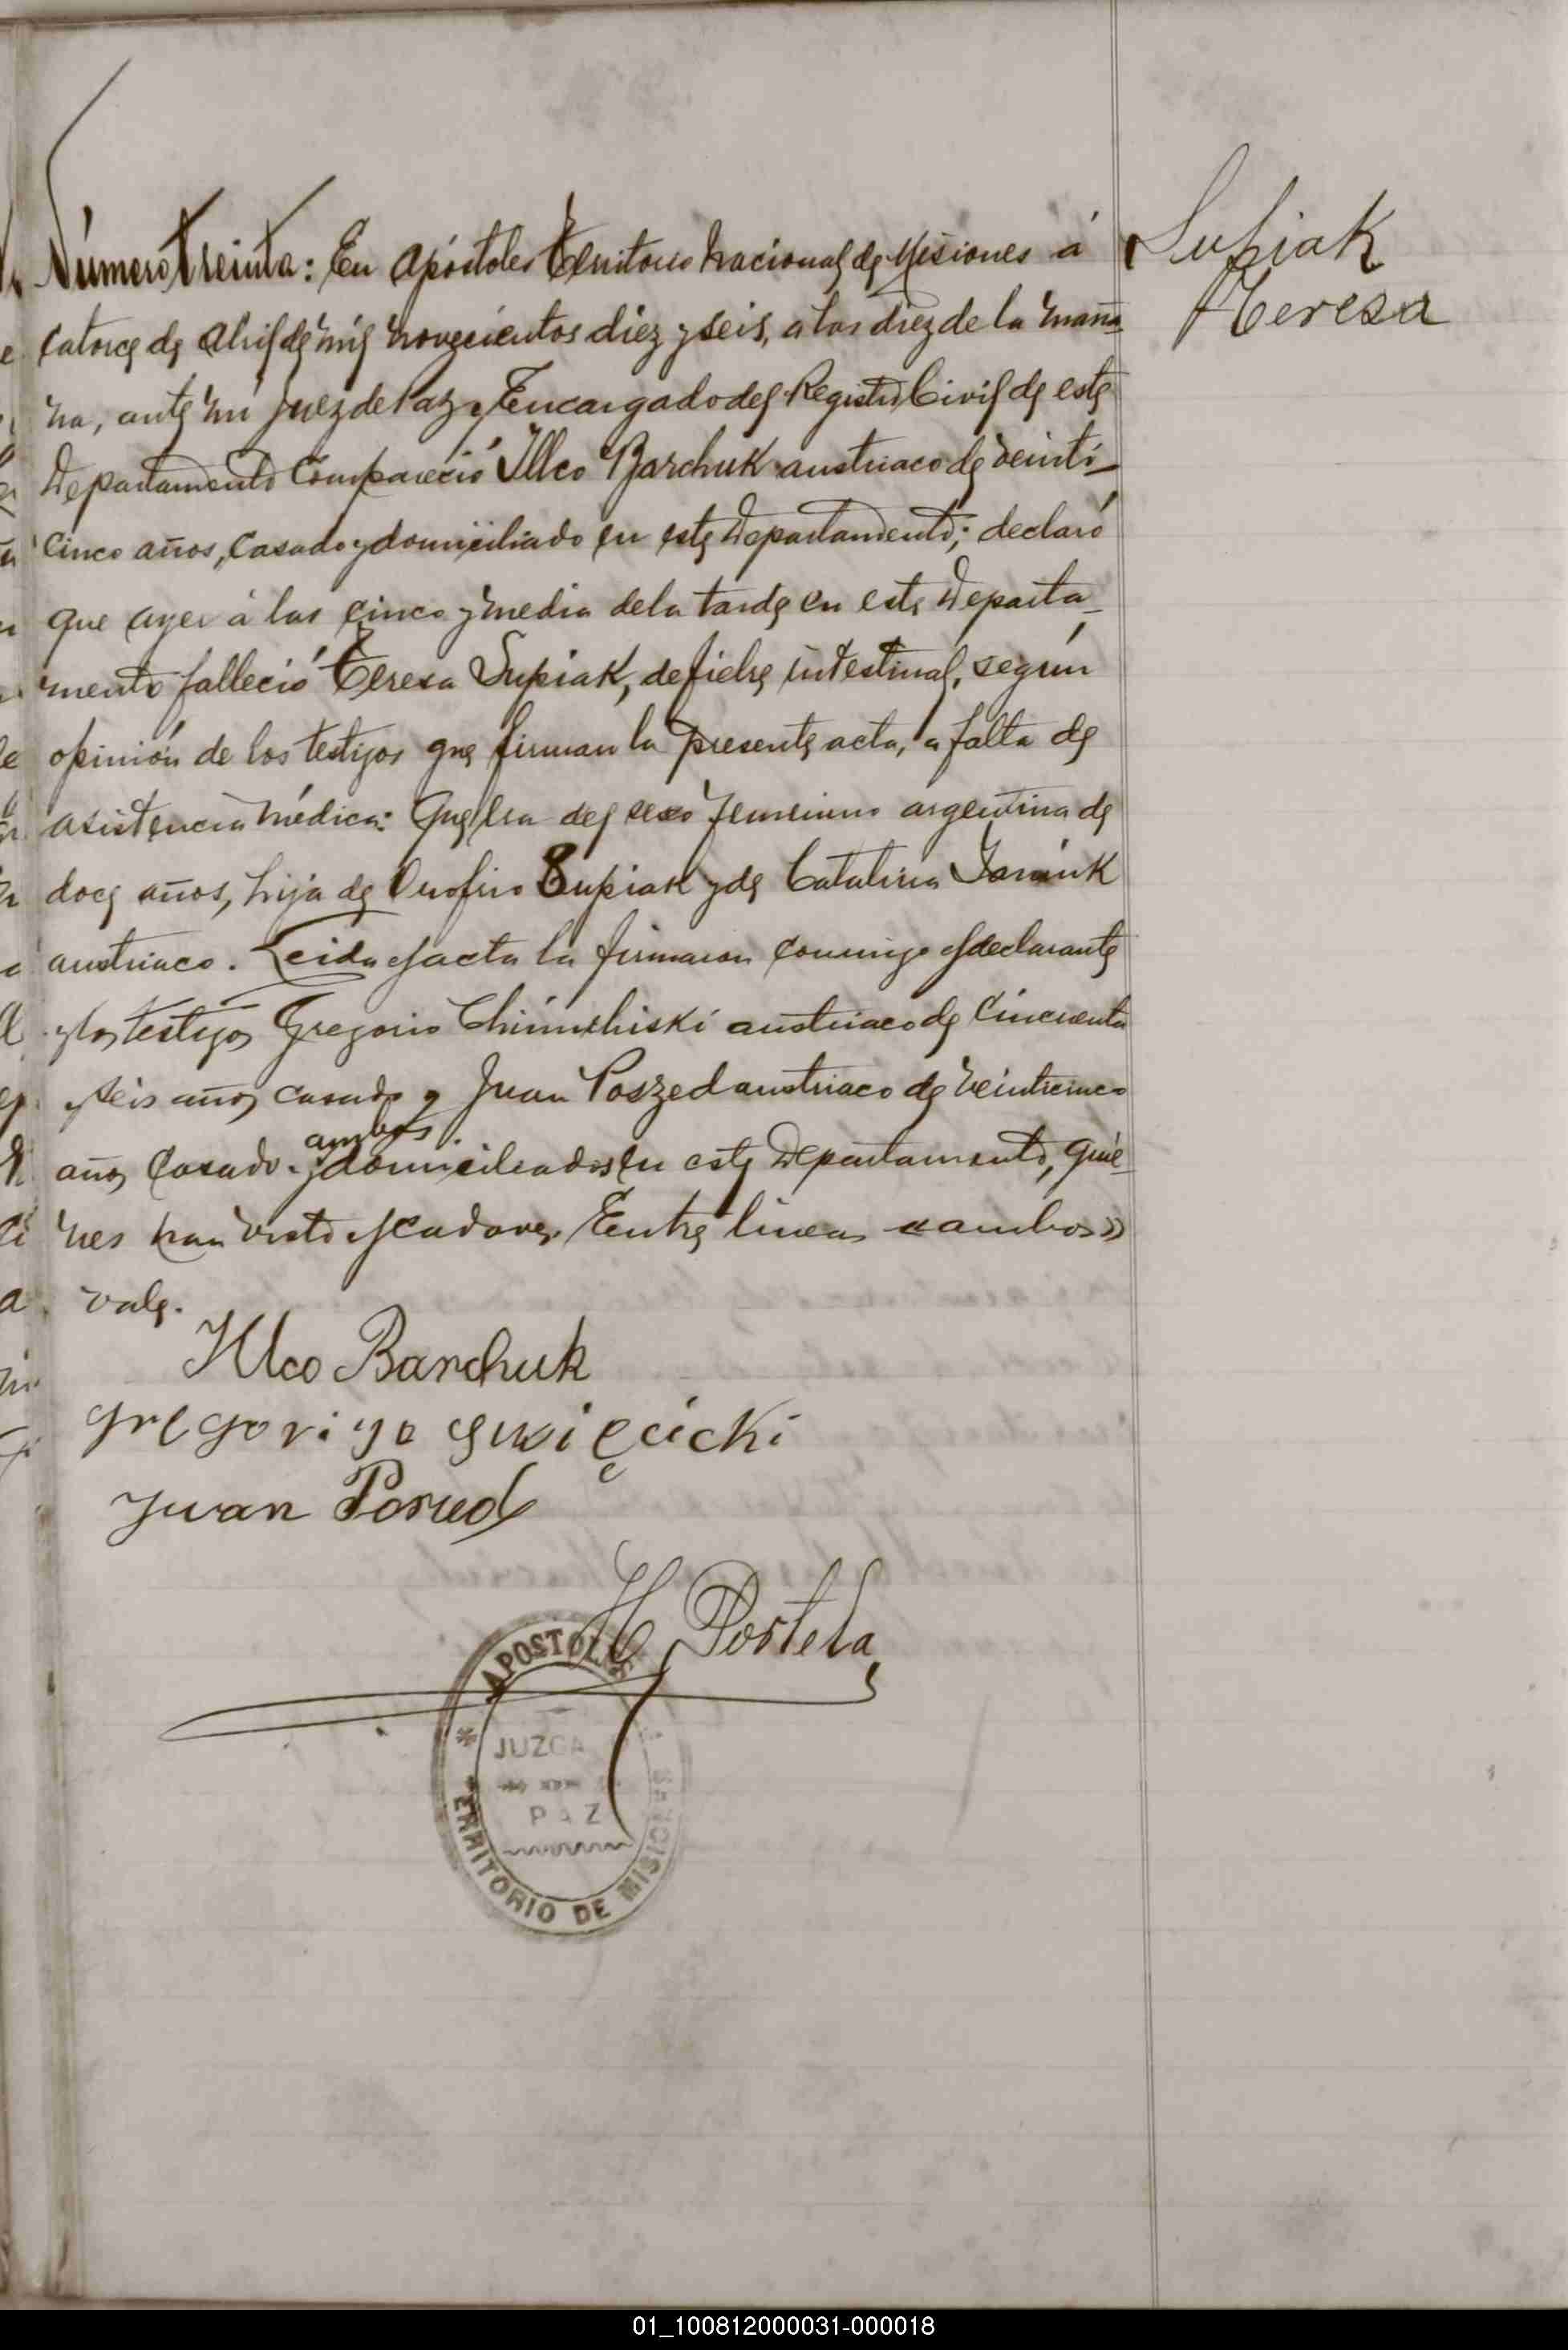 Supiak
Teresa
Número Treinta: En Apóstoles Territorio Nacional de Misiones á
catorce de Abril de mil novecientos diez y seis, a las diez de la maña
na, ante mi Juez de Paz y Encargado del Registro Civil de este
Departamento Compareció Illco Barchuk austriaco de veinti-
cinco años, casado y domiciliado en este Departamento; declaró
que ayer á las cinco y media de la tarde en este Departa-
mento falleció Teresa Supiak, de fiebre intestinal, según
opinión de los testigos que firman la presente acta, a falta de
asistencia médica: Que era del sexo femenino argentina de
doce años, hija de Onofrio Supiak y de Catalina
austriaco. Leida el acta la firmaron conmigo el declarante
y los testigos Gregorio austriaco de cincuenta
y seis años casado y Juan Poszed austriaco de veinticinco
años casado. y ambos domiciliados en este Departamento, quie-
nes han visto el cadaver. Entre lineas «ambos»
vale.
Illco Barchuk
Juan
H Portela
APOSTOLES
JUZGA
PAZ
TERRITORIO DE MISIONES
01_100812000031-000018